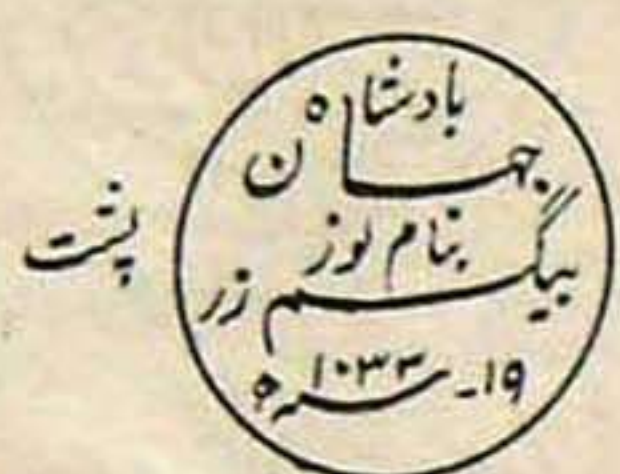 پشت
بادشاہ
جہان
بنام نور
بیگم زر
سنہ ۱۰۳۳ - ۱۹